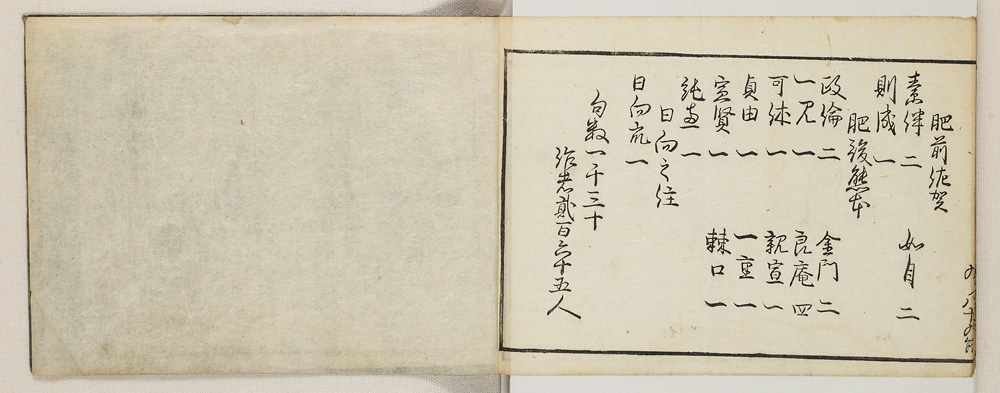 肥前佐賀
素律 二 如自 二
則成 一
肥後熊本
政倫 二 金門 二
一見 一 良庵 四
可抹 一 親宣 一
貞由 一 一室 一
宣賢 一 棘口 一
一
日向之住
日向亢 一
句数一千三十
作者貳百六十五人